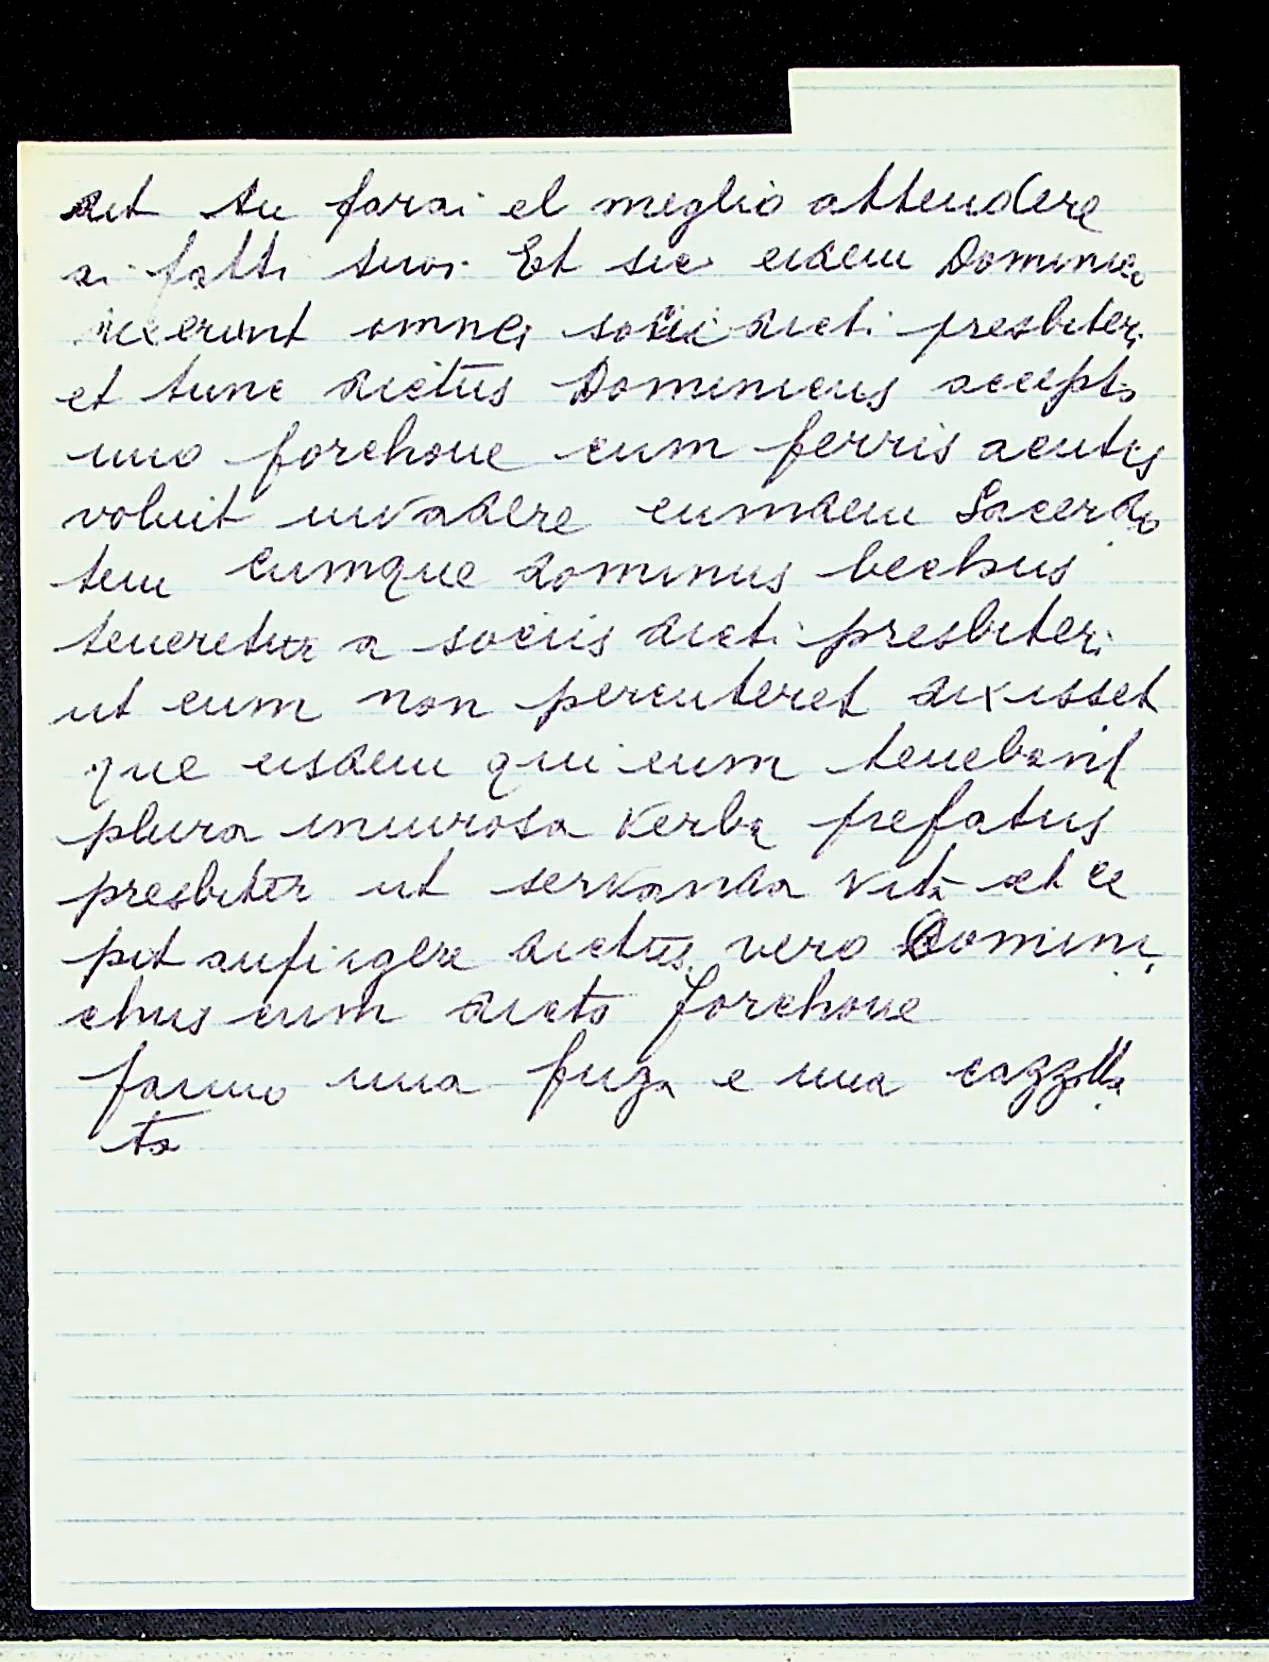 det tu farai el meglio attendere
ai fatti tuoi Et sic eidem Dominico
dixerunt omnes socii dicti presbiteri
et tunc dictus Dominicus accepto
uno forchone cum ferris acutis
voluit invadere eumdem Sacerdo
tem Cumque dominus bechus
teneretur a sociis dicti presbiteri
ut eum non percuteret dixisset
que eisdem qui eum tenebant
plura iniuriosa verba prefatus
presbiter ut servanda vita et ce
pit aufugere dictus vero Domini
chus cum dicto forchone
fanno una fuga e una cazzotta
ta